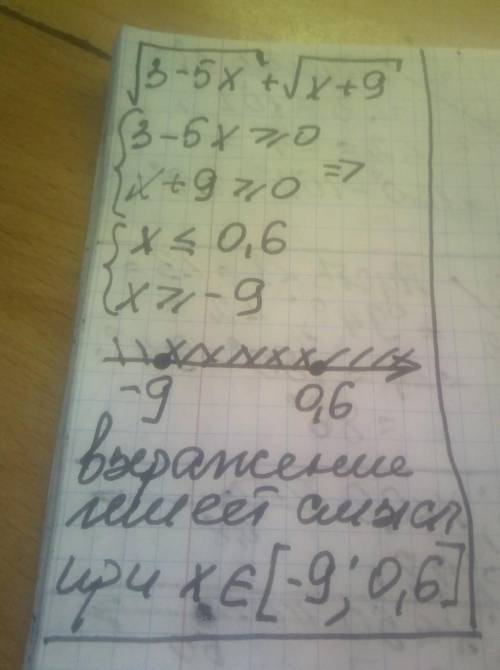 √3-5x + √x+9
{3-5x ≥ 0
{x+9 ≥ 0 =>
{x ≤ 0,6
{x ≥ -9
-9 0,6
выражение
имеет смысл
при x ∈ [-9; 0,6]